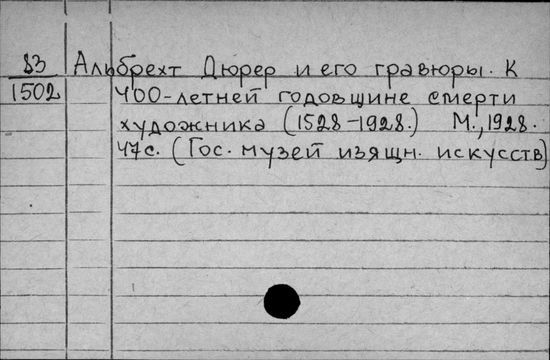 83 Альбрехт Дюрер и его гравюры. К
1502 400-летней годовщине смерти
художника (1528-1928.) М., 1928.
47с. (Гос. музей изящн. искусств)